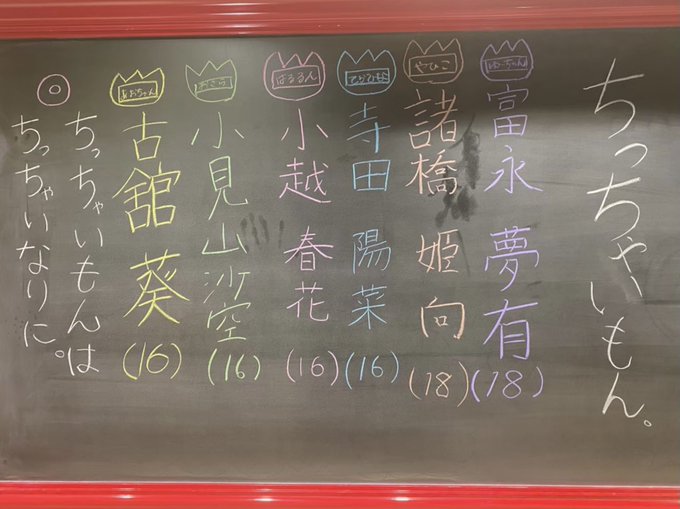 ちっちゃいもん。
ゆうちゃん
富永 夢有
(18)
やひこ
諸橋 姫向
(18)
てらひな
寺田 陽菜
(16)
はるるん
小越 春花
(16)
おさら
小見山沙空
(16)
あおちゃん
古舘 葵
(16)
◎
ちっちゃいもんは
ちっちゃいなりに。